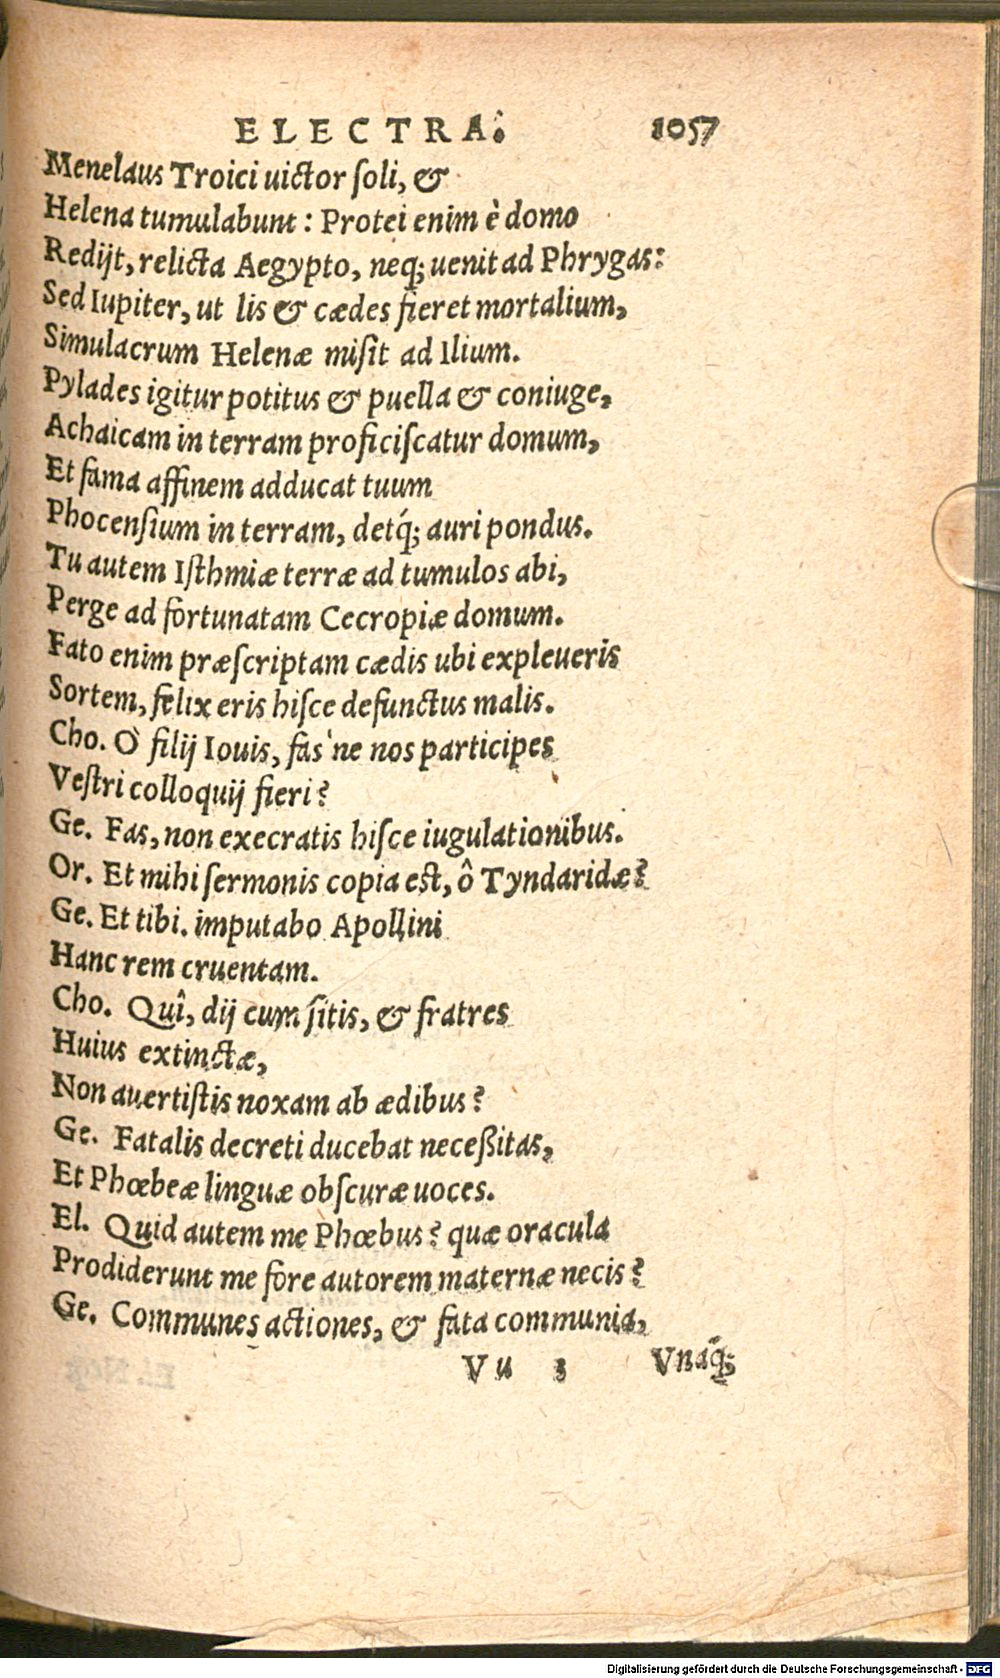 ELECTRA. 1057
Menelaus Troici uictor ſoli, &
Helena tumulabunt : Protei enim è domo
Redijt, relicta Aegypto, neq; uenit ad Phrygas:
Sed Iupiter, ut lis & cædes fieret mortalium,
Simulacrum Helenæ miſit ad Ilium.
Pylades igitur potitus & puella & coniuge,
Achaicam in terram proficiſcatur domum,
Et fama affinem adducat tuum
Phocenſium in terram, detq́; auri pondus.
Tu autem Iſthmiæ terræ ad tumulos abi,
Perge ad fortunatam Cecropiæ domum.
Fato enim præſcriptam cædis ubi expleueris
Sortem, felix eris hiſce defunctus malis.
Cho. Ò filij Iouis, fas'ne nos participes
Veſtri colloquij fieri?
Ge. Fas, non execratis hiſce iugulationibus.
Or. Et mihi ſermonis copia est, ô Tyndaridæ?
Ge. Et tibi. imputabo Apollini
Hanc rem cruentam.
Cho. Quî, dij cum ſitis, & fratres
Huius extinctæ,
Non auertiſtis noxam ab ædibus?
Ge. Fatalis decreti ducebat neceßitas,
Et Phœbeæ linguæ obſcuræ uoces.
El. Quid autem me Phœbus? quæ oracula
Prodiderunt me fore autorem maternæ necis?
Ge. Communes actiones, & fata communia,
Vu 3 Vnaq́;
Digitalisierung gefördert durch die Deutsche Forschungsgemeinschaft - DFG